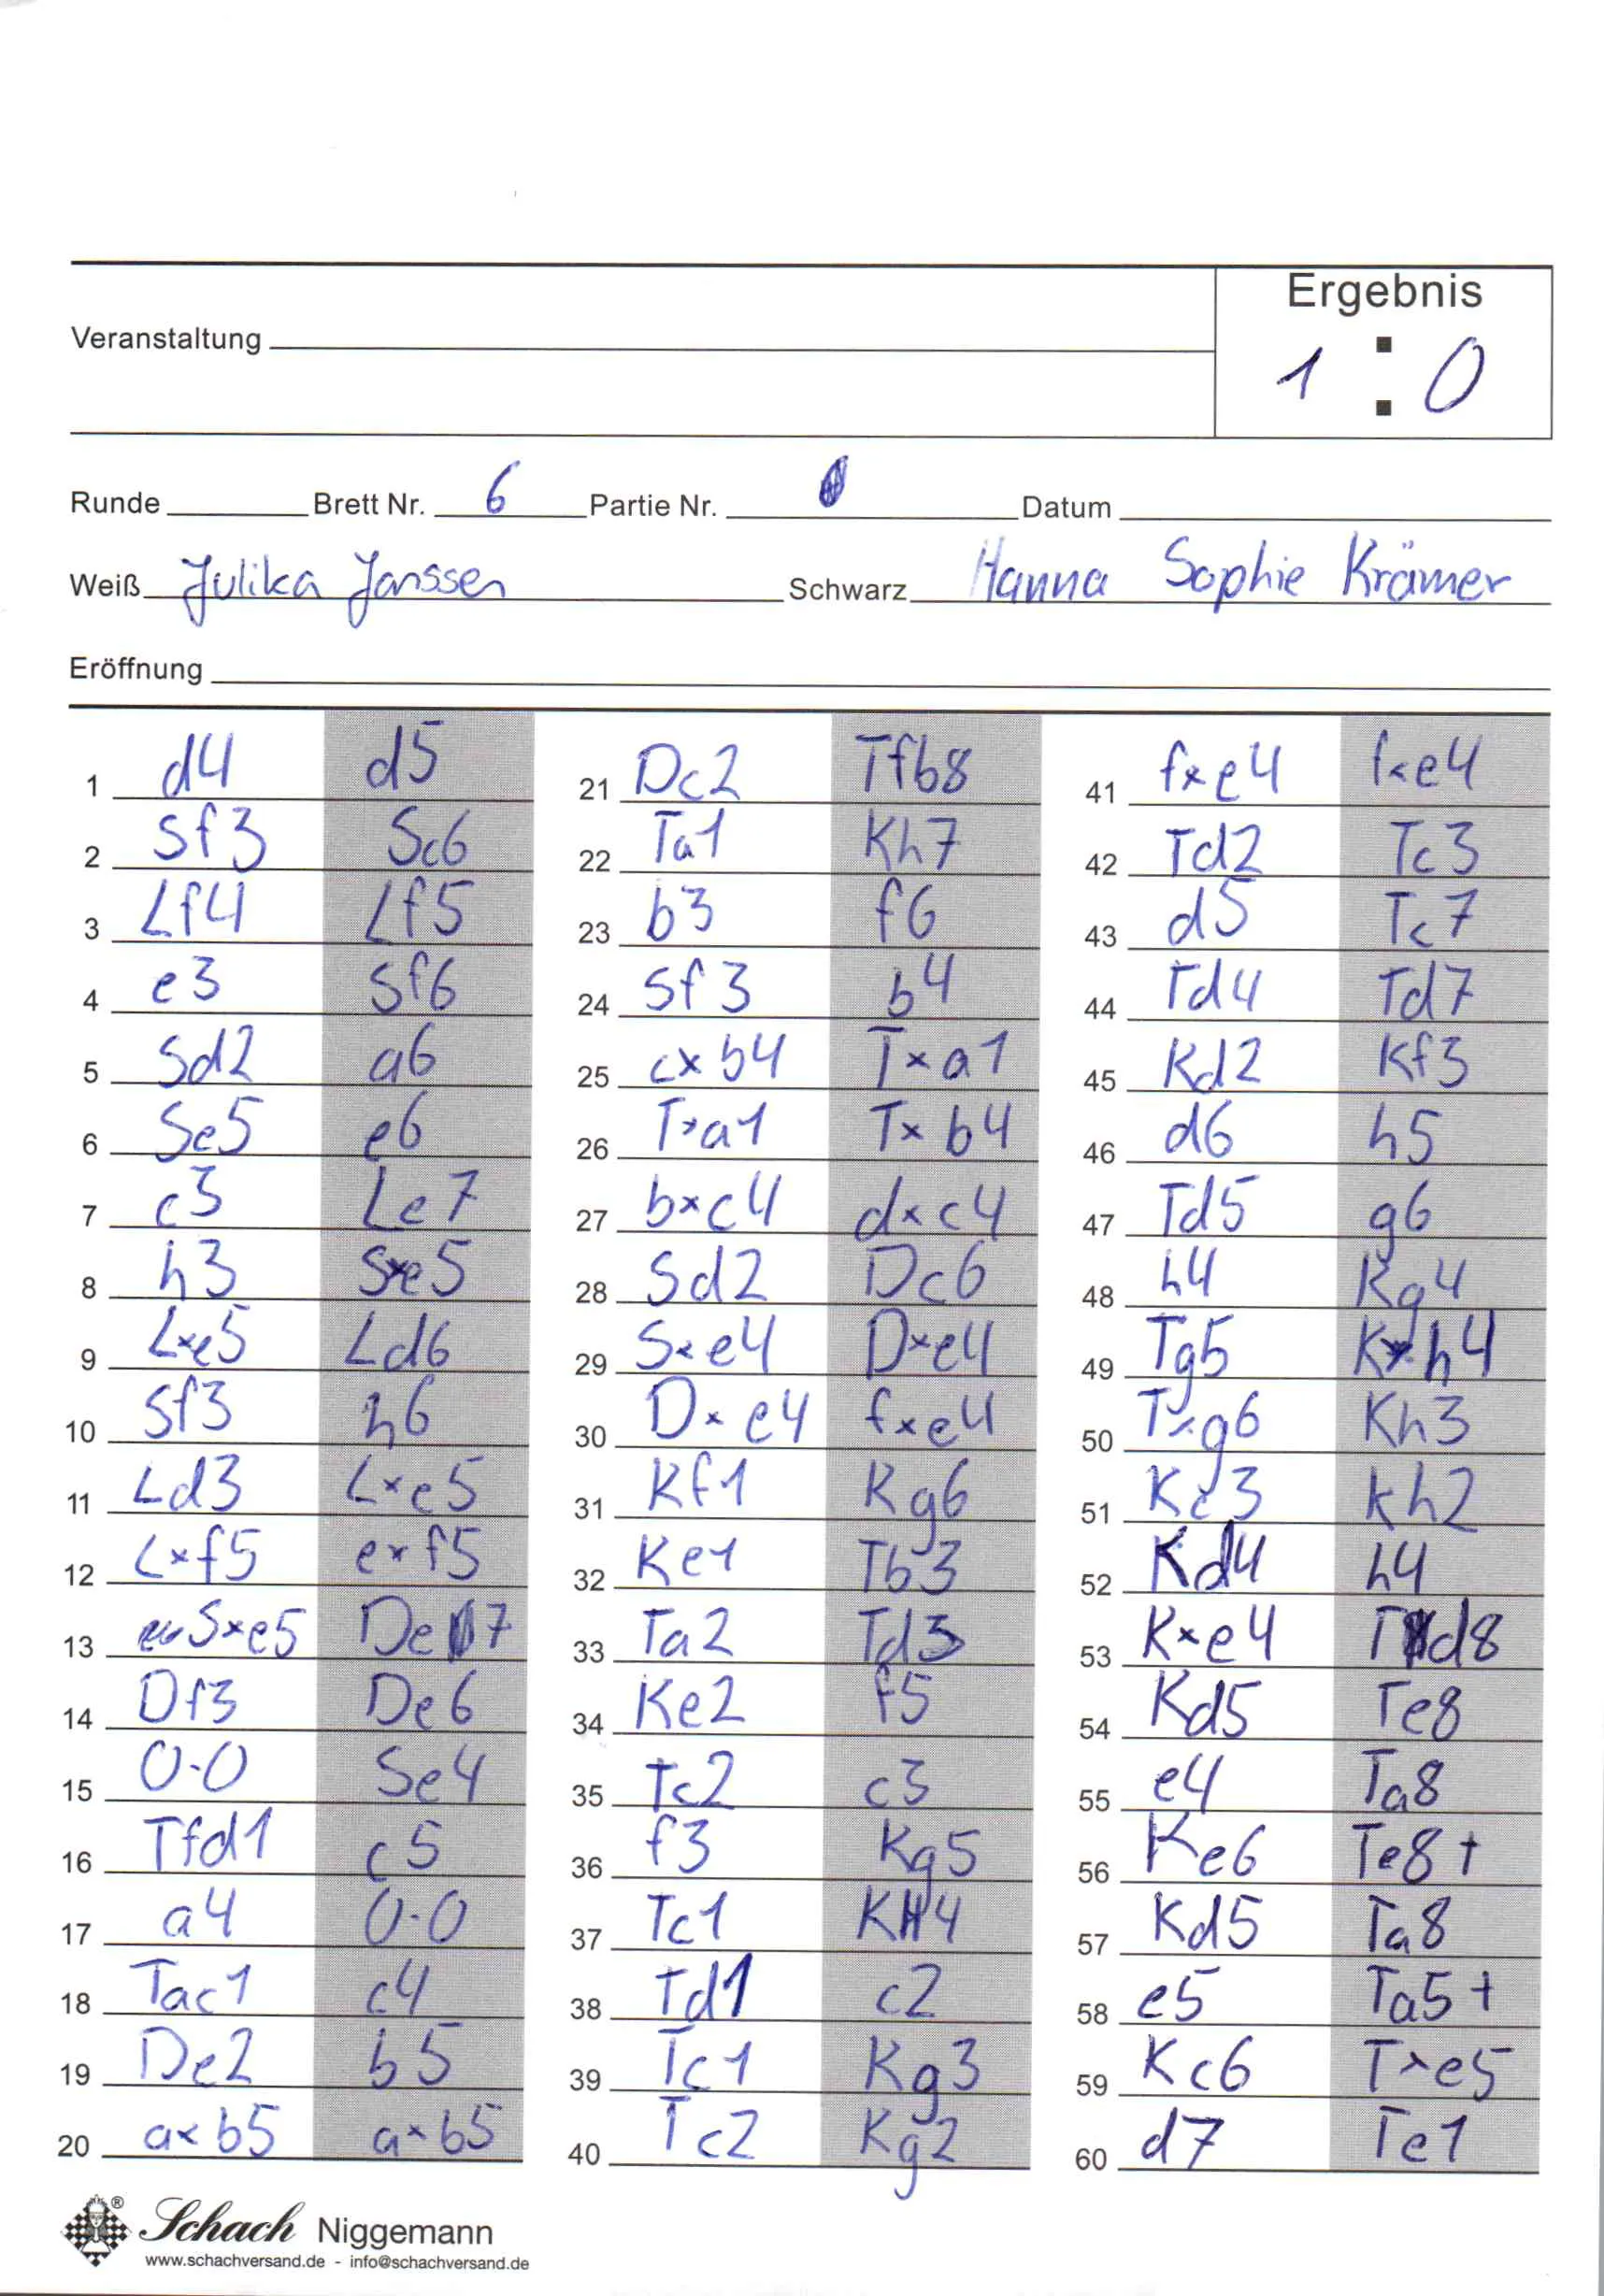 Ergebnis
Veranstaltung
1 : 0
Runde Brett Nr. 6 Partie Nr. Datum
Weiß Julika Janssen Schwarz Hanna Sophie Krämer
Eröffnung
1 d4 d5
2 Sf3 Sc6
3 Lf4 Lf5
4 e3 Sf6
5 Sd2 a6
6 Se5 e6
7 c3 Le7
8 h3 Sxe5
9 Lxe5 Ld6
10 Sf3 h6
11 Ld3 Lxe5
12 Lxf5 exf5
13 Sxe5 De7
14 Df3 De6
15 0-0 Se4
16 Tfd1 c5
17 a4 0-0
18 Tac1 c4
19 De2 b5
20 axb5 axb5
21 Dc2 Tfb8
22 Ta1 Kh7
23 b3 f6
24 Sf3 b4
25 cxb4 Txa1
26 Txa1 Txb4
27 bxc4 dxc4
28 Sd2 Dc6
29 Sxe4 Dxe4
30 Dxe4 fxe4
31 Kf1 Kg6
32 Ke1 Tb3
33 Ta2 Td3
34 Ke2 f5
35 Tc2 c3
36 f3 Kg5
37 Tc1 KH4
38 Td1 c2
39 Tc1 Kg3
40 Tc2 Kg2
41 fxe4 fxe4
42 Td2 Tc3
43 d5 Tc7
44 Td4 Td7
45 Kd2 Kf3
46 d6 h5
47 Td5 g6
48 h4 Kg4
49 Tg5 Kxh4
50 Txg6 Kh3
51 Kc3 Kh2
52 Kd4 h4
53 Kxe4 Td8
54 Kd5 Te8
55 e4 Ta8
56 Ke6 Te8+
57 Kd5 Ta8
58 e5 Ta5+
59 Kc6 Txe5
60 d7 Te1
Schach Niggemann
www.schachversand.de - info@schachversand.de